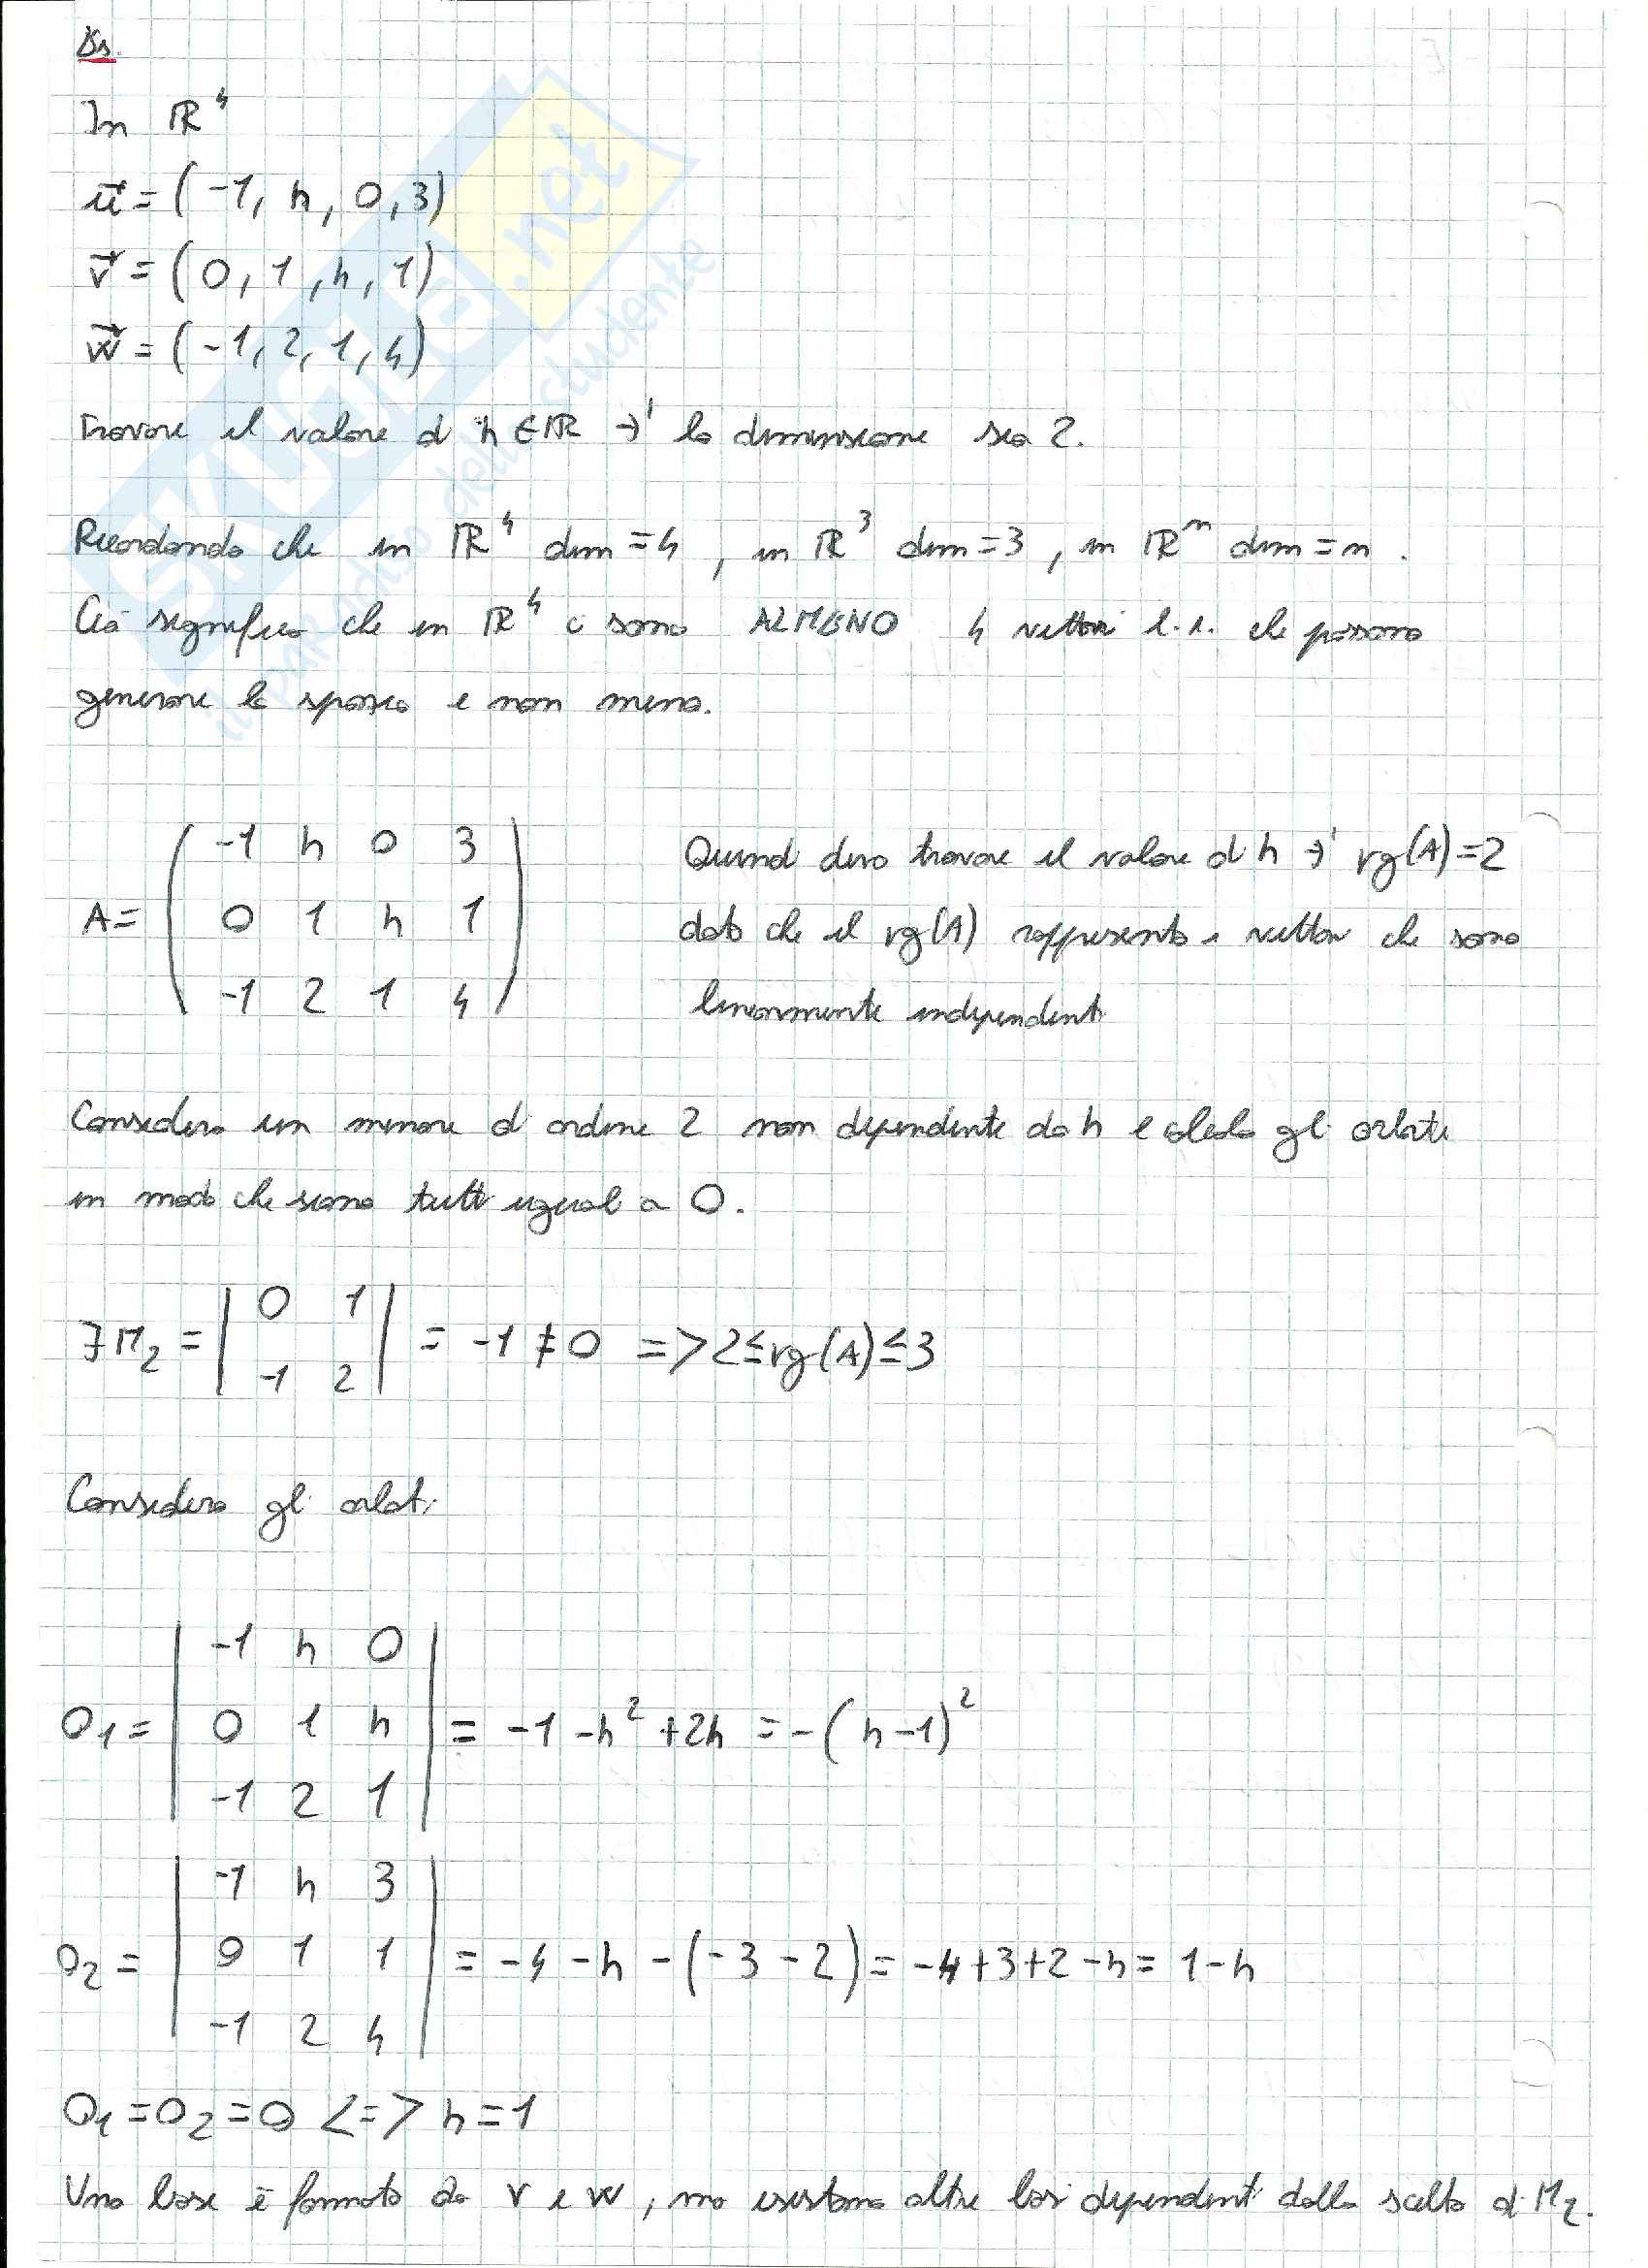 Es.
In ℝ⁴
u⃗ = (-1, h, 0, 3)
v⃗ = (0, 1, h, 1)
w⃗ = (-1, 2, 1, 4)
Trovare il valore di h ∈ ℝ ∋' la dimensione sia 2.
Ricordando che in ℝ⁴ dim = 4, in ℝ³ dim = 3, in ℝⁿ dim = n.
Ciò significa che in ℝ⁴ ci sono ALMENO 4 vettori l.i. che possono
generare lo spazio e non meno.
A = ( -1 h 0 3
0 1 h 1
-1 2 1 4 )
Quindi devo trovare il valore di h ∋' rg(A)=2
dato che il rg(A) rappresenta i vettori che sono
linearmente indipendenti
Considero un minore di ordine 2 non dipendente da h e calcolo gli orlati
in modo che siano tutti uguali a 0.
∃ M₂ = | 0 1
-1 2 | = -1 ≠ 0 => 2 ≤ rg(A) ≤ 3
Considero gli orlati
O₁ = | -1 h 0
0 1 h
-1 2 1 | = -1 - h² + 2h = -(h-1)²
O₂ = | -1 h 3
0 1 1
-1 2 4 | = -4 - h - (-3 - 2) = -4+3+2-h = 1-h
O₁ = O₂ = 0 <=> h = 1
Una base è formata da v e w, ma esistono altre basi dipendenti dalla scelta di M₂.
SKUOLA.net